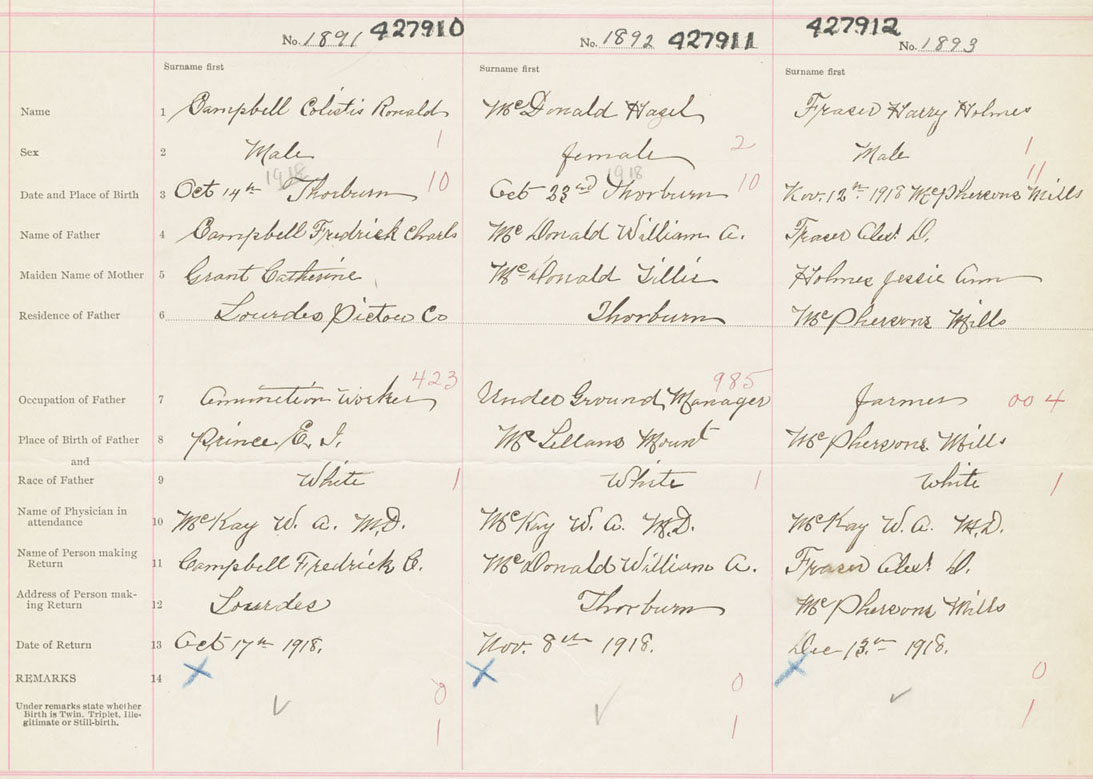 No. 1891 427910 No. 1892 427911 427912 No. 1893
Surname first Surname first Surname first
Name 1 Campbell Colistis Ronald McDonald Hazel Fraser Harry Holmes
Sex 2 Male 1 female 2 Male 1
1918 1918 11
Date and Place of Birth 3 Oct 14th Thorburn 10 Oct 23rd Thorburn 10 Nov. 12th 1918 McPhersons Mills
Name of Father 4 Campbell Fredrick Charls McDonald William A. Fraser Alex. D.
Maiden Name of Mother 5 Grant Catherine McDonald Tillie Holmes Jessie Ann
Residence of Father 6 Lourdes Pictou Co Thorburn McPhersons Mills
423 985
Occupation of Father 7 Amunition Worker Under Ground Manager farmer 004
Place of Birth of Father 8 Prince E. I. McLellans Mount McPhersons Mills
and
Race of Father 9 White 1 White 1 White 1
Name of Physician in
attendance 10 McKay W. A. M.D. McKay W. A. M.D. McKay W. A. M.D.
Name of Person making
Return 11 Campbell Fredrick C. McDonald William A. Fraser Alex. D.
Address of Person mak-
ing Return 12 Lourdes Thorburn McPhersons Mills
Date of Return 13 Oct 17th 1918. Nov. 8th 1918. Dec 13th 1918.
REMARKS 14 X X X
0 0 0
Under remarks state whether
Birth is Twin, Triplet, Ille-
gitimate or Still-birth.
1 1 1